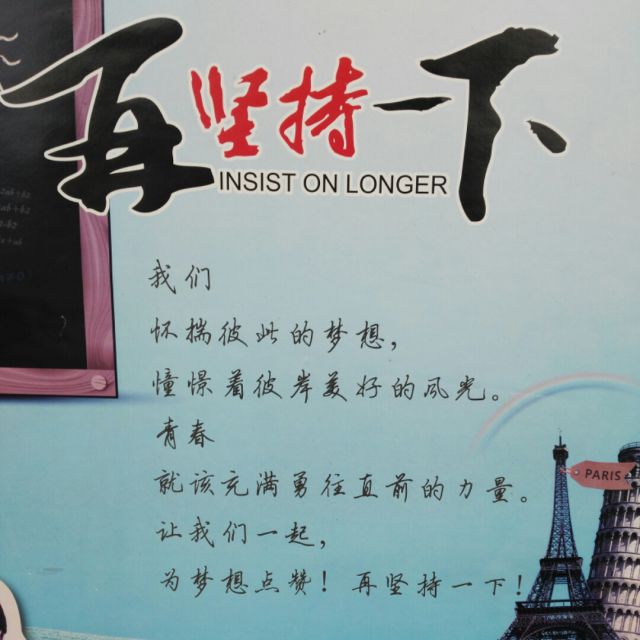 再坚持一下
INSIST ON LONGER
我们
怀揣彼此的梦想，
憧憬着彼岸美好的风光。
青春
就该充满勇往直前的力量。
让我们一起，
为梦想点赞！再坚持一下！
PARIS